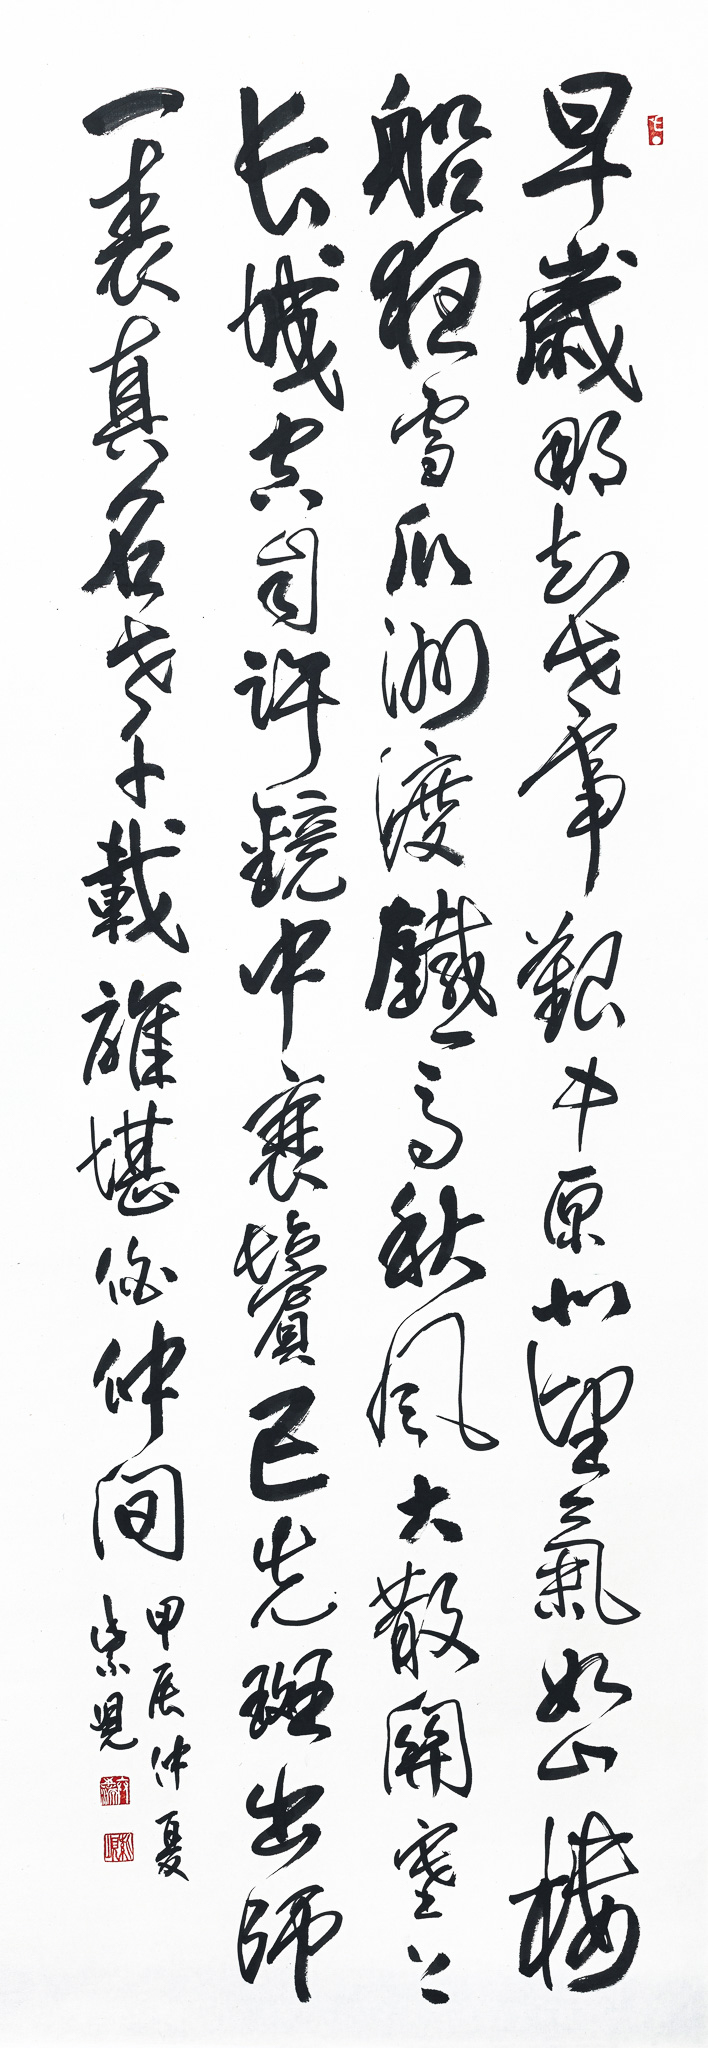 早歲那知世事艱中原北望氣如山樓
船夜雪瓜洲渡鐵馬秋風大散關塞上
长城空自許鏡中衰鬢已先斑出師
一表真名世千載誰堪伯仲間
甲辰仲夏
紫